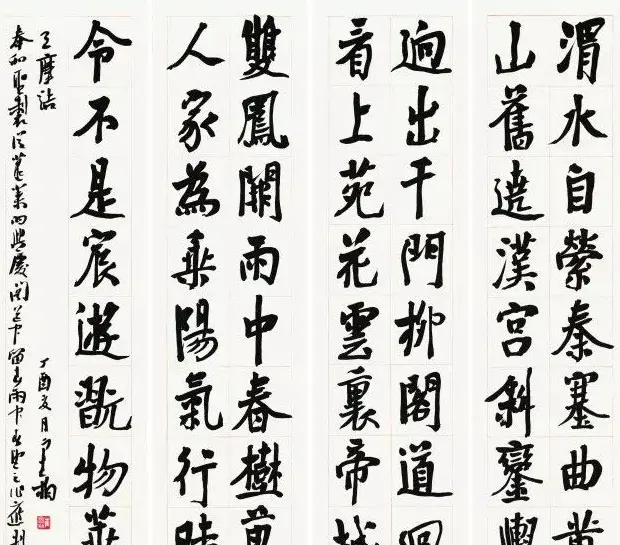 渭水自縈秦塞曲黄
山舊遶漢宮斜鑾輿
逈出千門柳閣道回
看上苑花雲裏帝城
雙鳳闕雨中春樹萬
人家為乘陽氣行時
令不是宸遊翫物華
王摩詰
奉和聖製從蓬萊向興慶閣道中留春雨中春望之作應制
丁酉夏月